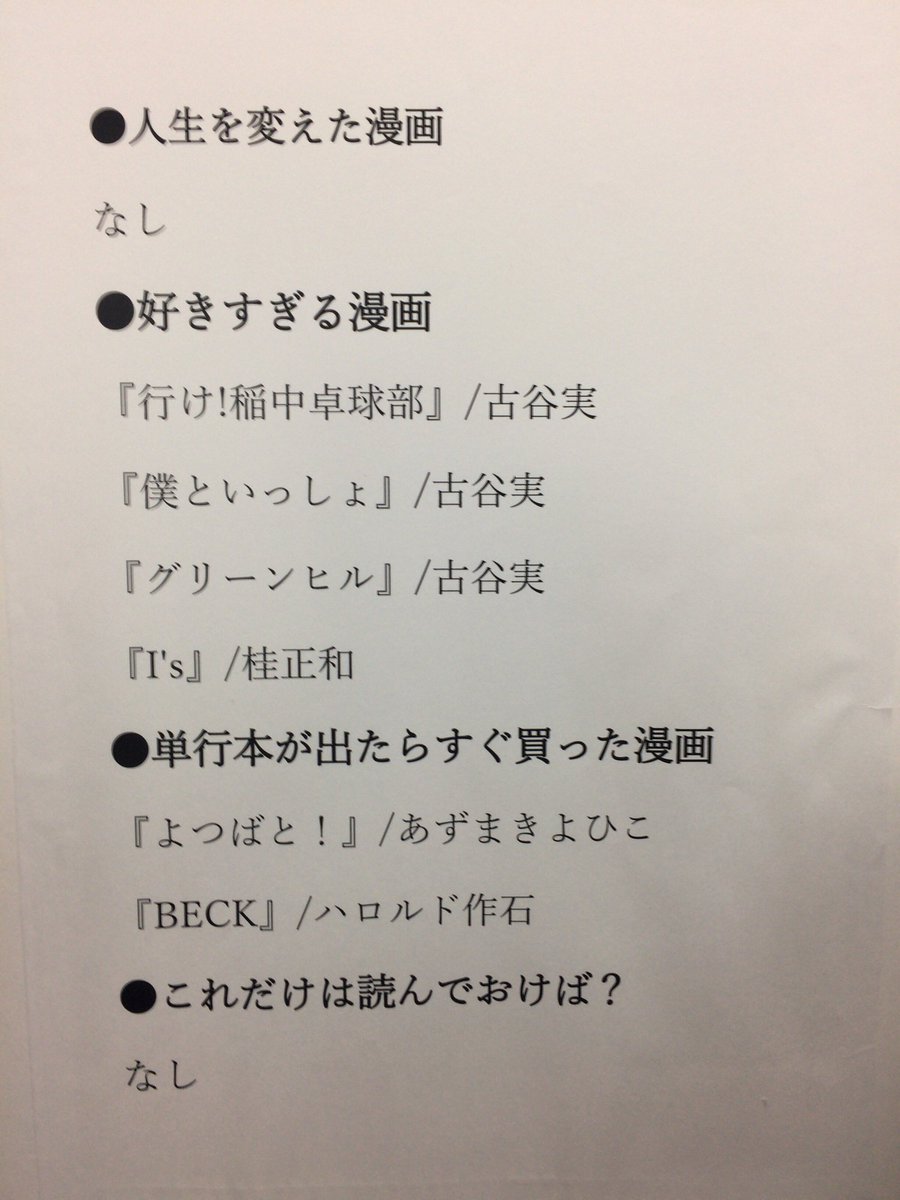 ●人生を変えた漫画
なし
●好きすぎる漫画
『行け!稲中卓球部』/古谷実
『僕といっしょ』/古谷実
『グリーンヒル』/古谷実
『I's』/桂正和
●単行本が出たらすぐ買った漫画
『よつばと！』/あずまきよひこ
『BECK』/ハロルド作石
●これだけは読んでおけば？
なし